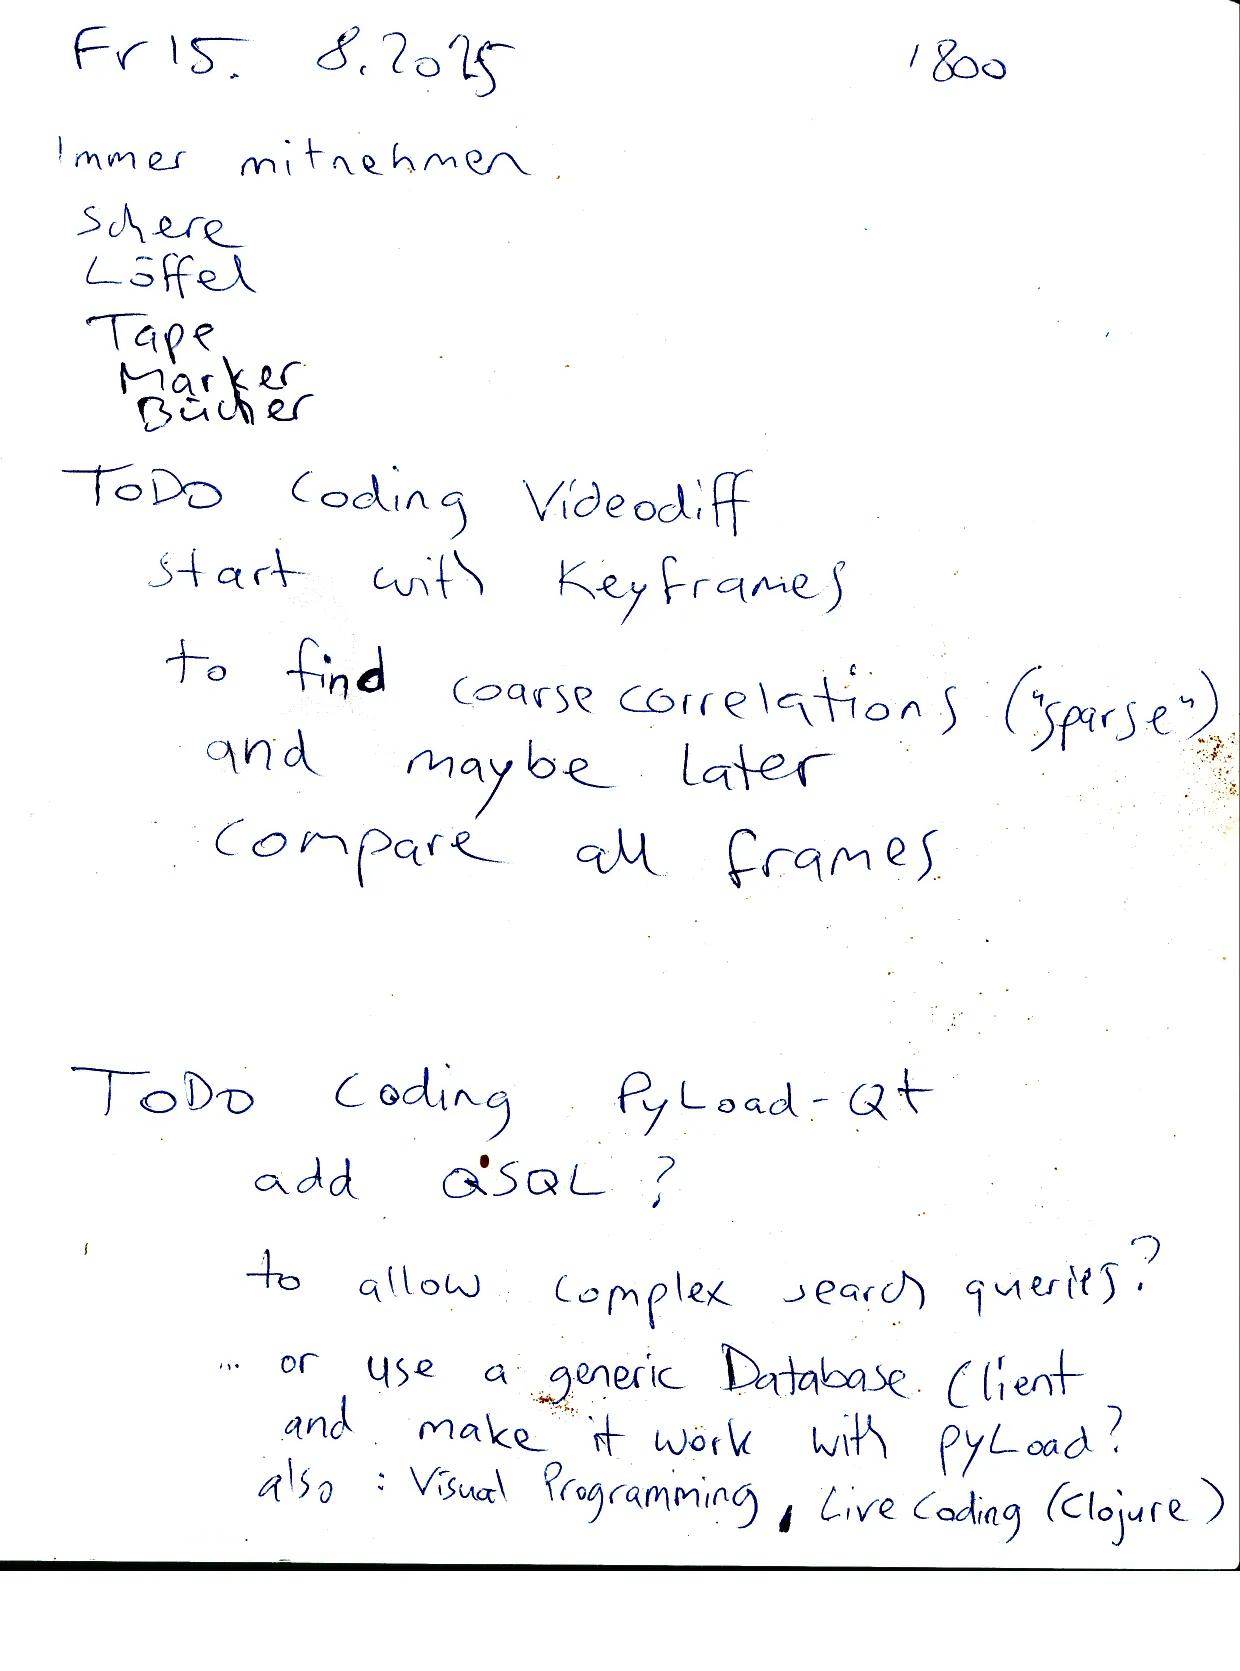 Fr 15. 8. 2025 1800
Immer mitnehmen
Schere
Löffel
Tape
Marker
Bücher
ToDo Coding Videodiff
start with Keyframes
to find coarse correlations ("sparse")
and maybe later
compare all frames
ToDo Coding PyLoad-Qt
add QSQL ?
to allow complex search queries?
... or use a generic Database Client
and make it work with pyLoad?
also : Visual Programming, Live Coding (Clojure)